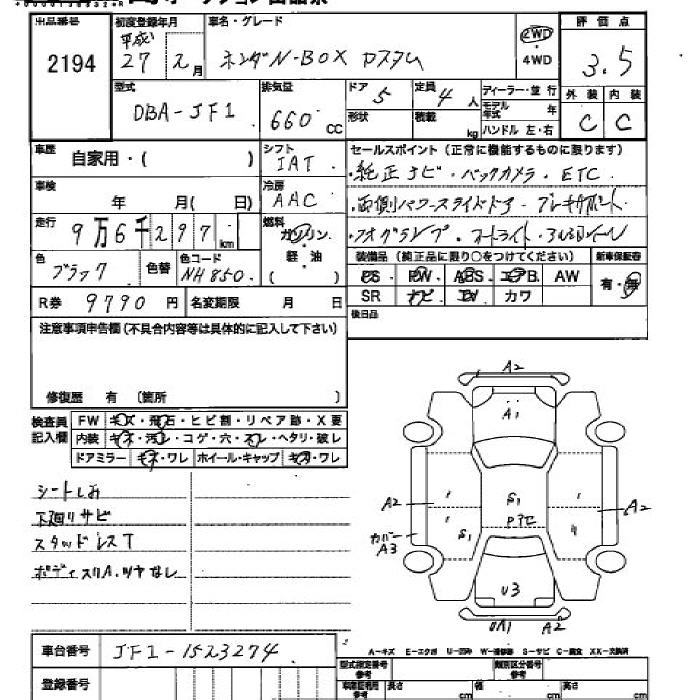 出品番号 初度登録年月 車名・グレード 評価点
2194 平成 27 2月 ホンダ N-BOX カスタム 2WD ・ 4WD 3.5
外装 内装
C C
型式 排気量 ドア 定員 ディーラー・並行
DBA-JF1 660 CC 5 4人 モデル年式 年
形状 積載 kg ハンドル 左・右
車歴 自家用・( ) シフト IAT セールスポイント(正常に機能するものに限ります)
車検 年 月( 日) 冷房 AAC ・純正ナビ・バックカメラ・ETC
・両側パワースライドドア・
走行 9万6千297km 燃料 ガソリン・軽・油 ・フォグランプ・オートライト・
( )
色 ブラック 色替 色コード NH850 装備品(純正品に限り○をつけてください) 新車保証書
PS PW ABS エアB AW 有・無
R券 9790円 名変期限 月 日 SR ナビ カワ
注意事項申告欄(不具合内容等は具体的に記入して下さい) 後日品
修復歴 有 〔箇所 〕
検査員記入欄 FW キズ・飛石・ヒビ割・リペア跡・X要
内装 キズ・汚レ・コゲ・穴・スレ・ヘタリ・破レ
ドアミラー キズ・ワレ ホイール・キャップ キズ・ワレ
シートしみ
下廻りサビ
スタッドレスT
ボディスリA・ツヤなし
A2
A1
A2 S1 A2
カバー A3 S1
U3
UA1 A2
車台番号 JF1-1523274 A-キズ E-エクボ U-凹み W-補修跡 S-サビ C-腐食 XX-交換済
登録番号 型式指定番号 参考 類別区分番号 参考
長さ cm 幅 cm 高 cm